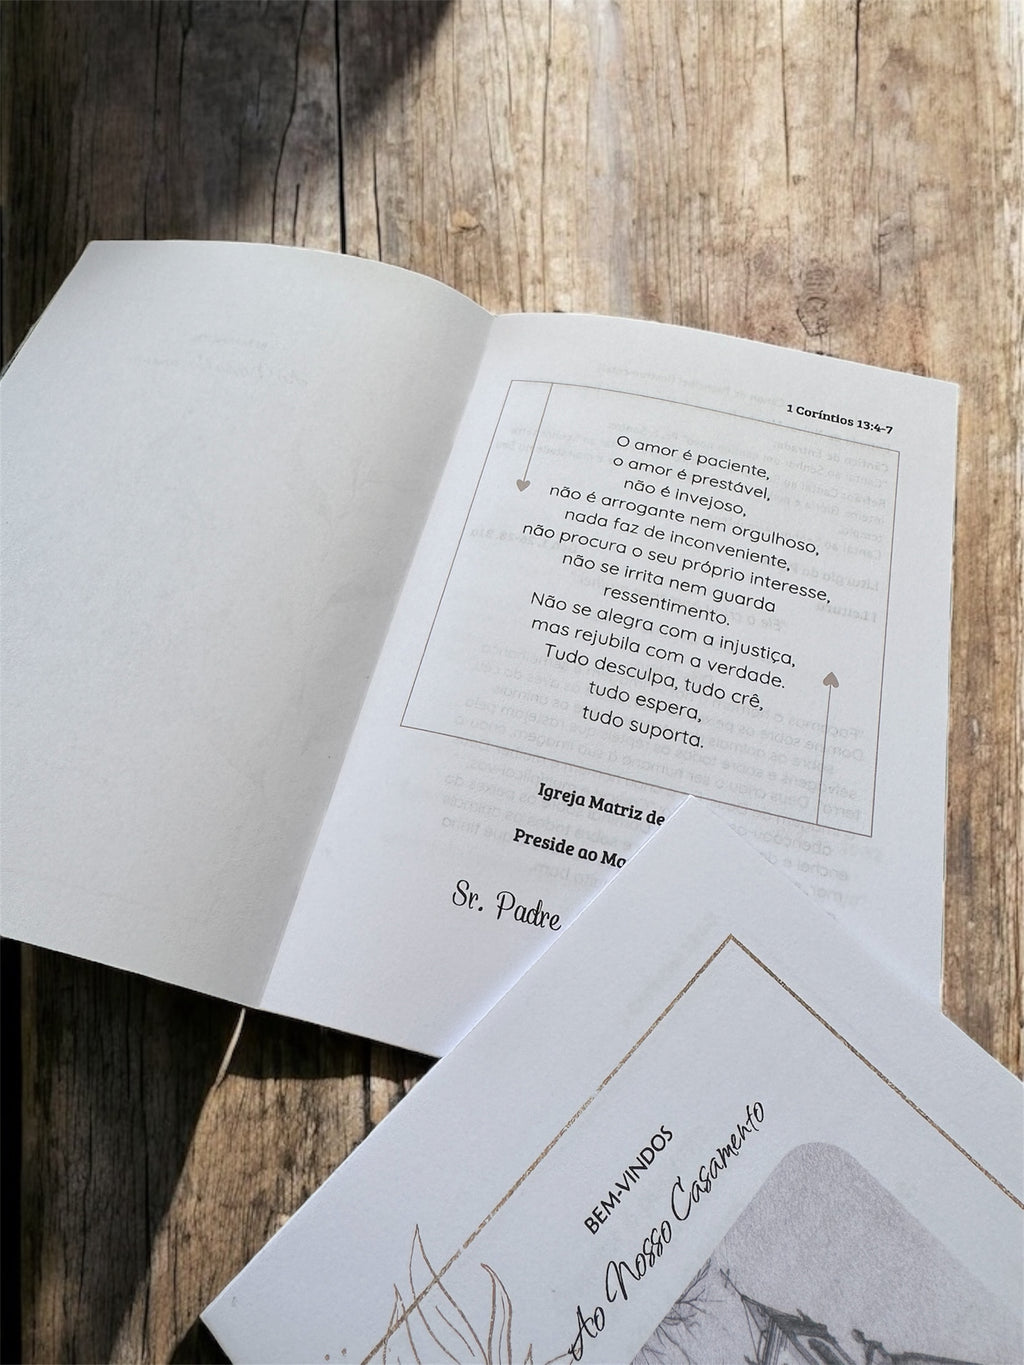 1 Coríntios 13:4-7
O amor é paciente,
o amor é prestável,
não é invejoso,
não é arrogante nem orgulhoso,
nada faz de inconveniente,
não procura o seu próprio interesse,
não se irrita nem guarda
ressentimento.
Não se alegra com a injustiça,
mas rejubila com a verdade.
Tudo desculpa, tudo crê,
tudo espera,
tudo suporta.
Igreja Matriz de
Preside ao
Sr. Padre
BEM-VINDOS
Ao Nosso Casamento